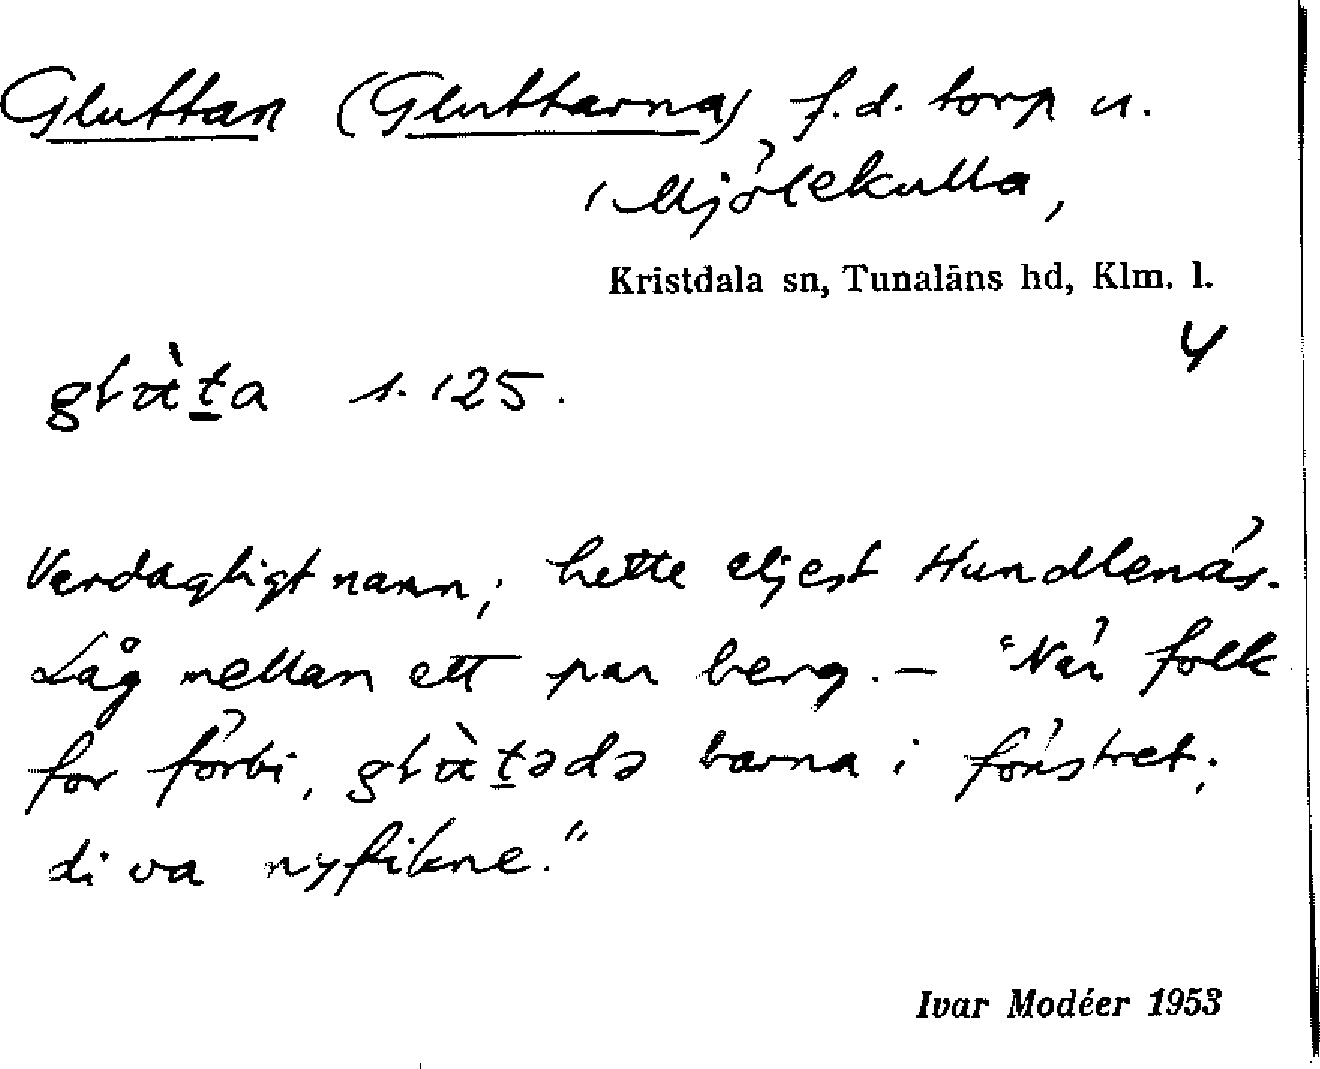 Gluttan (Gluttarna) f.d. torp u.
Mjölekulla,
Kristdala sn, Tunaläns hd, Klm. l.
4
s. 125.
Vardagligt namn; hette eljest Hundlenäs.
Låg mellan ett par berg. – "När folk
for förbi, barna i fönstret;
di va nyfikne."
Ivar Modéer 1953